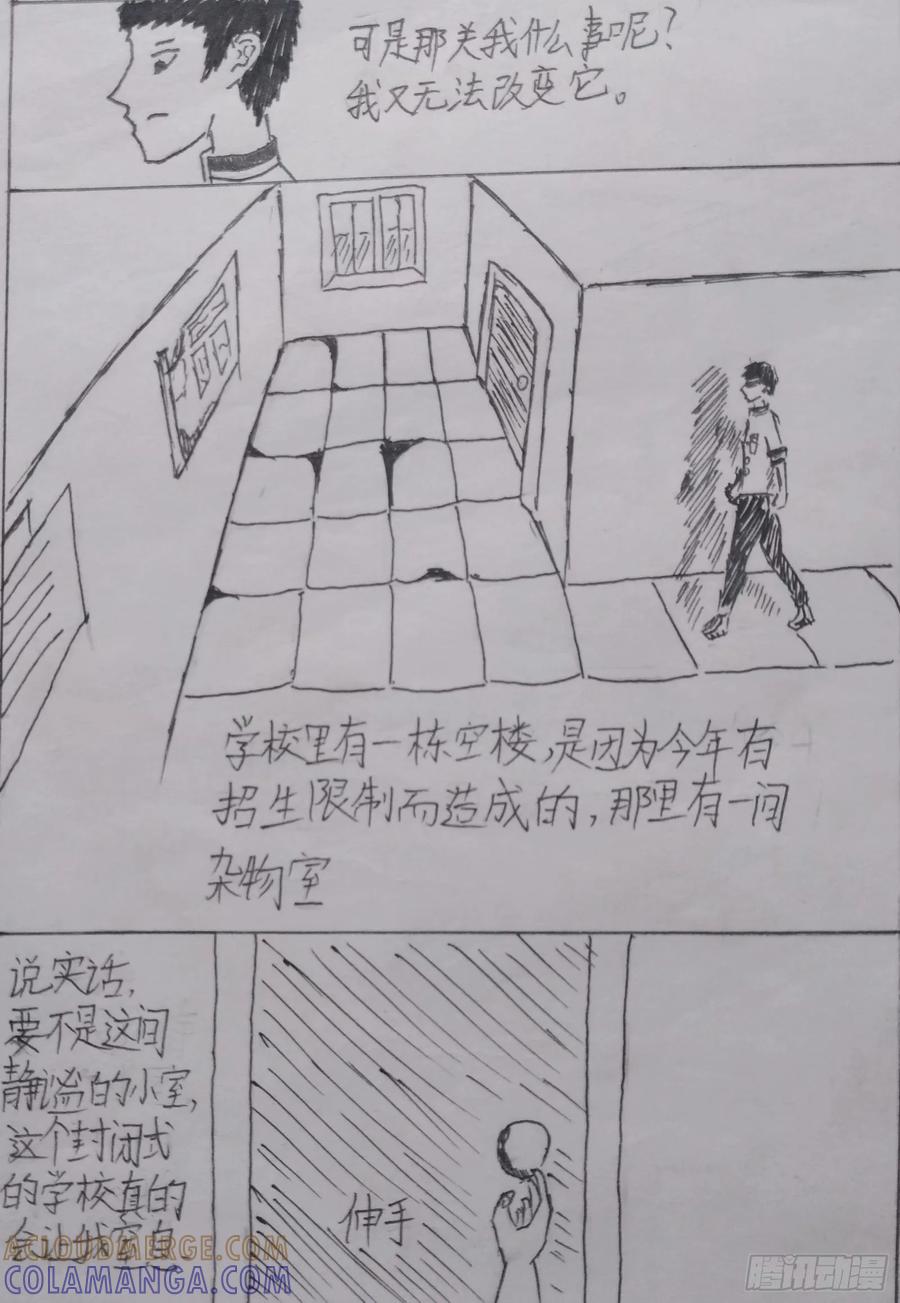 可是那关我什么事呢？
我又无法改变它。
学校里有一栋空楼，是因为今年有
招生限制而造成的，那里有一间
杂物室
说实话，
要不是这间
静谧的小室，
这个封闭式
的学校真的
会让我窒息
伸手
ACLOUDMERGE.COM
COLAMANGA.COM
腾讯动漫